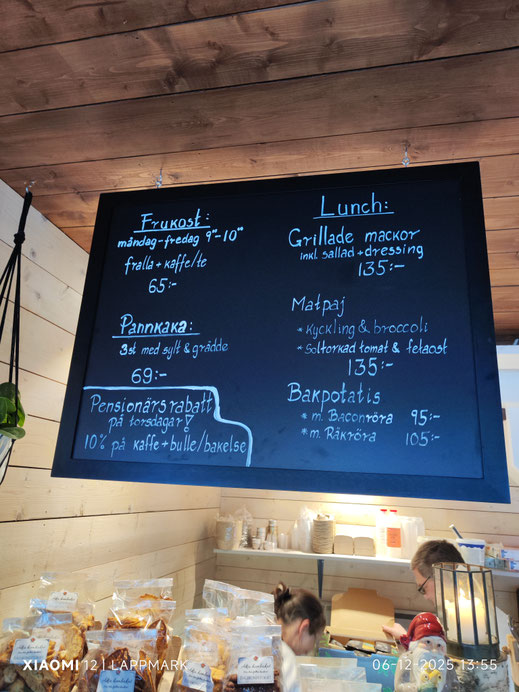 Frukost:
måndag-fredag 9⁰⁰-10⁰⁰
fralla + kaffe/te
65:-
Pannkaka:
3st med sylt & grädde
69:-
Pensionärsrabatt
på torsdagar!
10% på kaffe + bulle/bakelse
Lunch:
Grillade mackor
inkl. sallad + dressing
135:-
Matpaj
* Kyckling & broccoli
* Soltorkad tomat & fetaost
135:-
Bakpotatis
* m. Baconröra 95:-
* m. Räkröra 105:-
XIAOMI 12 | LAPPMARK
06-12-2025 13:55